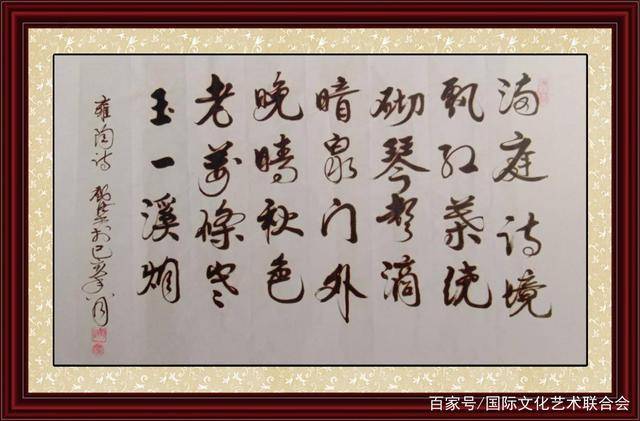 满庭诗境
飘红葉绕
砌琴声滴
暗泉门外
晚晴秋色
老萬條寒
玉一溪烟
雍陶诗
百家号/国际文化艺术联合会